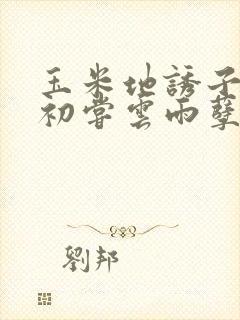 玉米地誘子
初嘗雲雨孽
劉邦